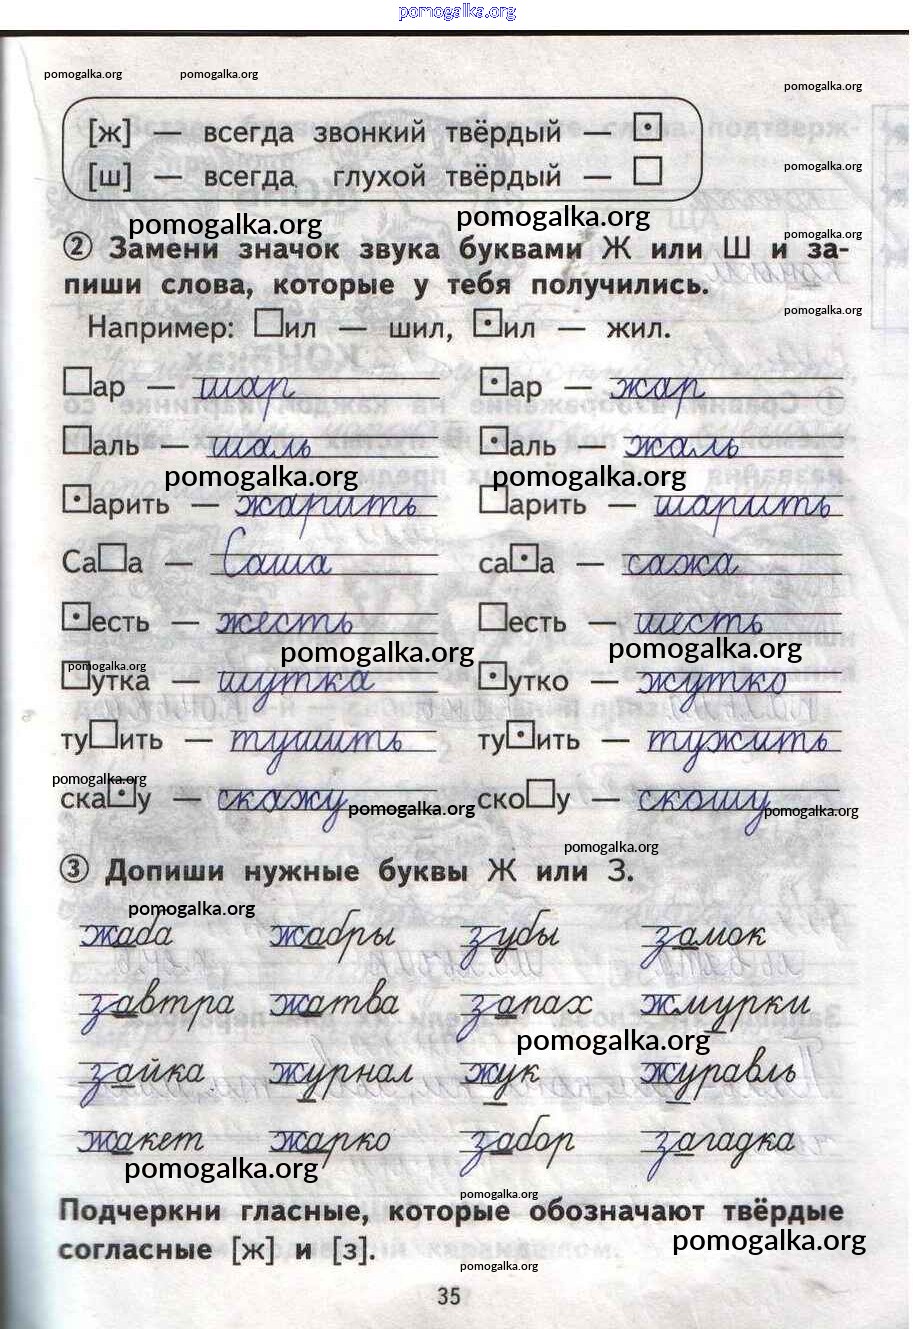 pomogalka.org
pomogalka.org pomogalka.org
pomogalka.org
[ж] — всегда звонкий твёрдый —
[ш] — всегда глухой твёрдый —
pomogalka.org
pomogalka.org pomogalka.org
pomogalka.org
② Замени значок звука буквами Ж или Ш и за-
пиши слова, которые у тебя получились.
pomogalka.org
Например: □ил — шил, ⊡ил — жил.
□ар — шар ⊡ар — жар
□аль — шаль ⊡аль — жаль
pomogalka.org pomogalka.org
⊡арить — жарить □арить — шарить
Са□а — Саша са⊡а — сажа
⊡есть — жесть □есть — шесть
pomogalka.org pomogalka.org
pomogalka.org
□утка — шутка ⊡утко — жутко
ту□ить — тушить ту⊡ить — тужить
pomogalka.org
ска⊡у — скажу ско□у — скошу
pomogalka.org pomogalka.org
pomogalka.org
③ Допиши нужные буквы Ж или З.
pomogalka.org
жаба жабры зубы замок
завтра жатва запах жмурки
pomogalka.org
зайка журнал жук журавль
жакет жарко забор загадка
pomogalka.org
pomogalka.org
Подчеркни гласные, которые обозначают твёрдые
согласные [ж] и [з].
pomogalka.org
pomogalka.org
35